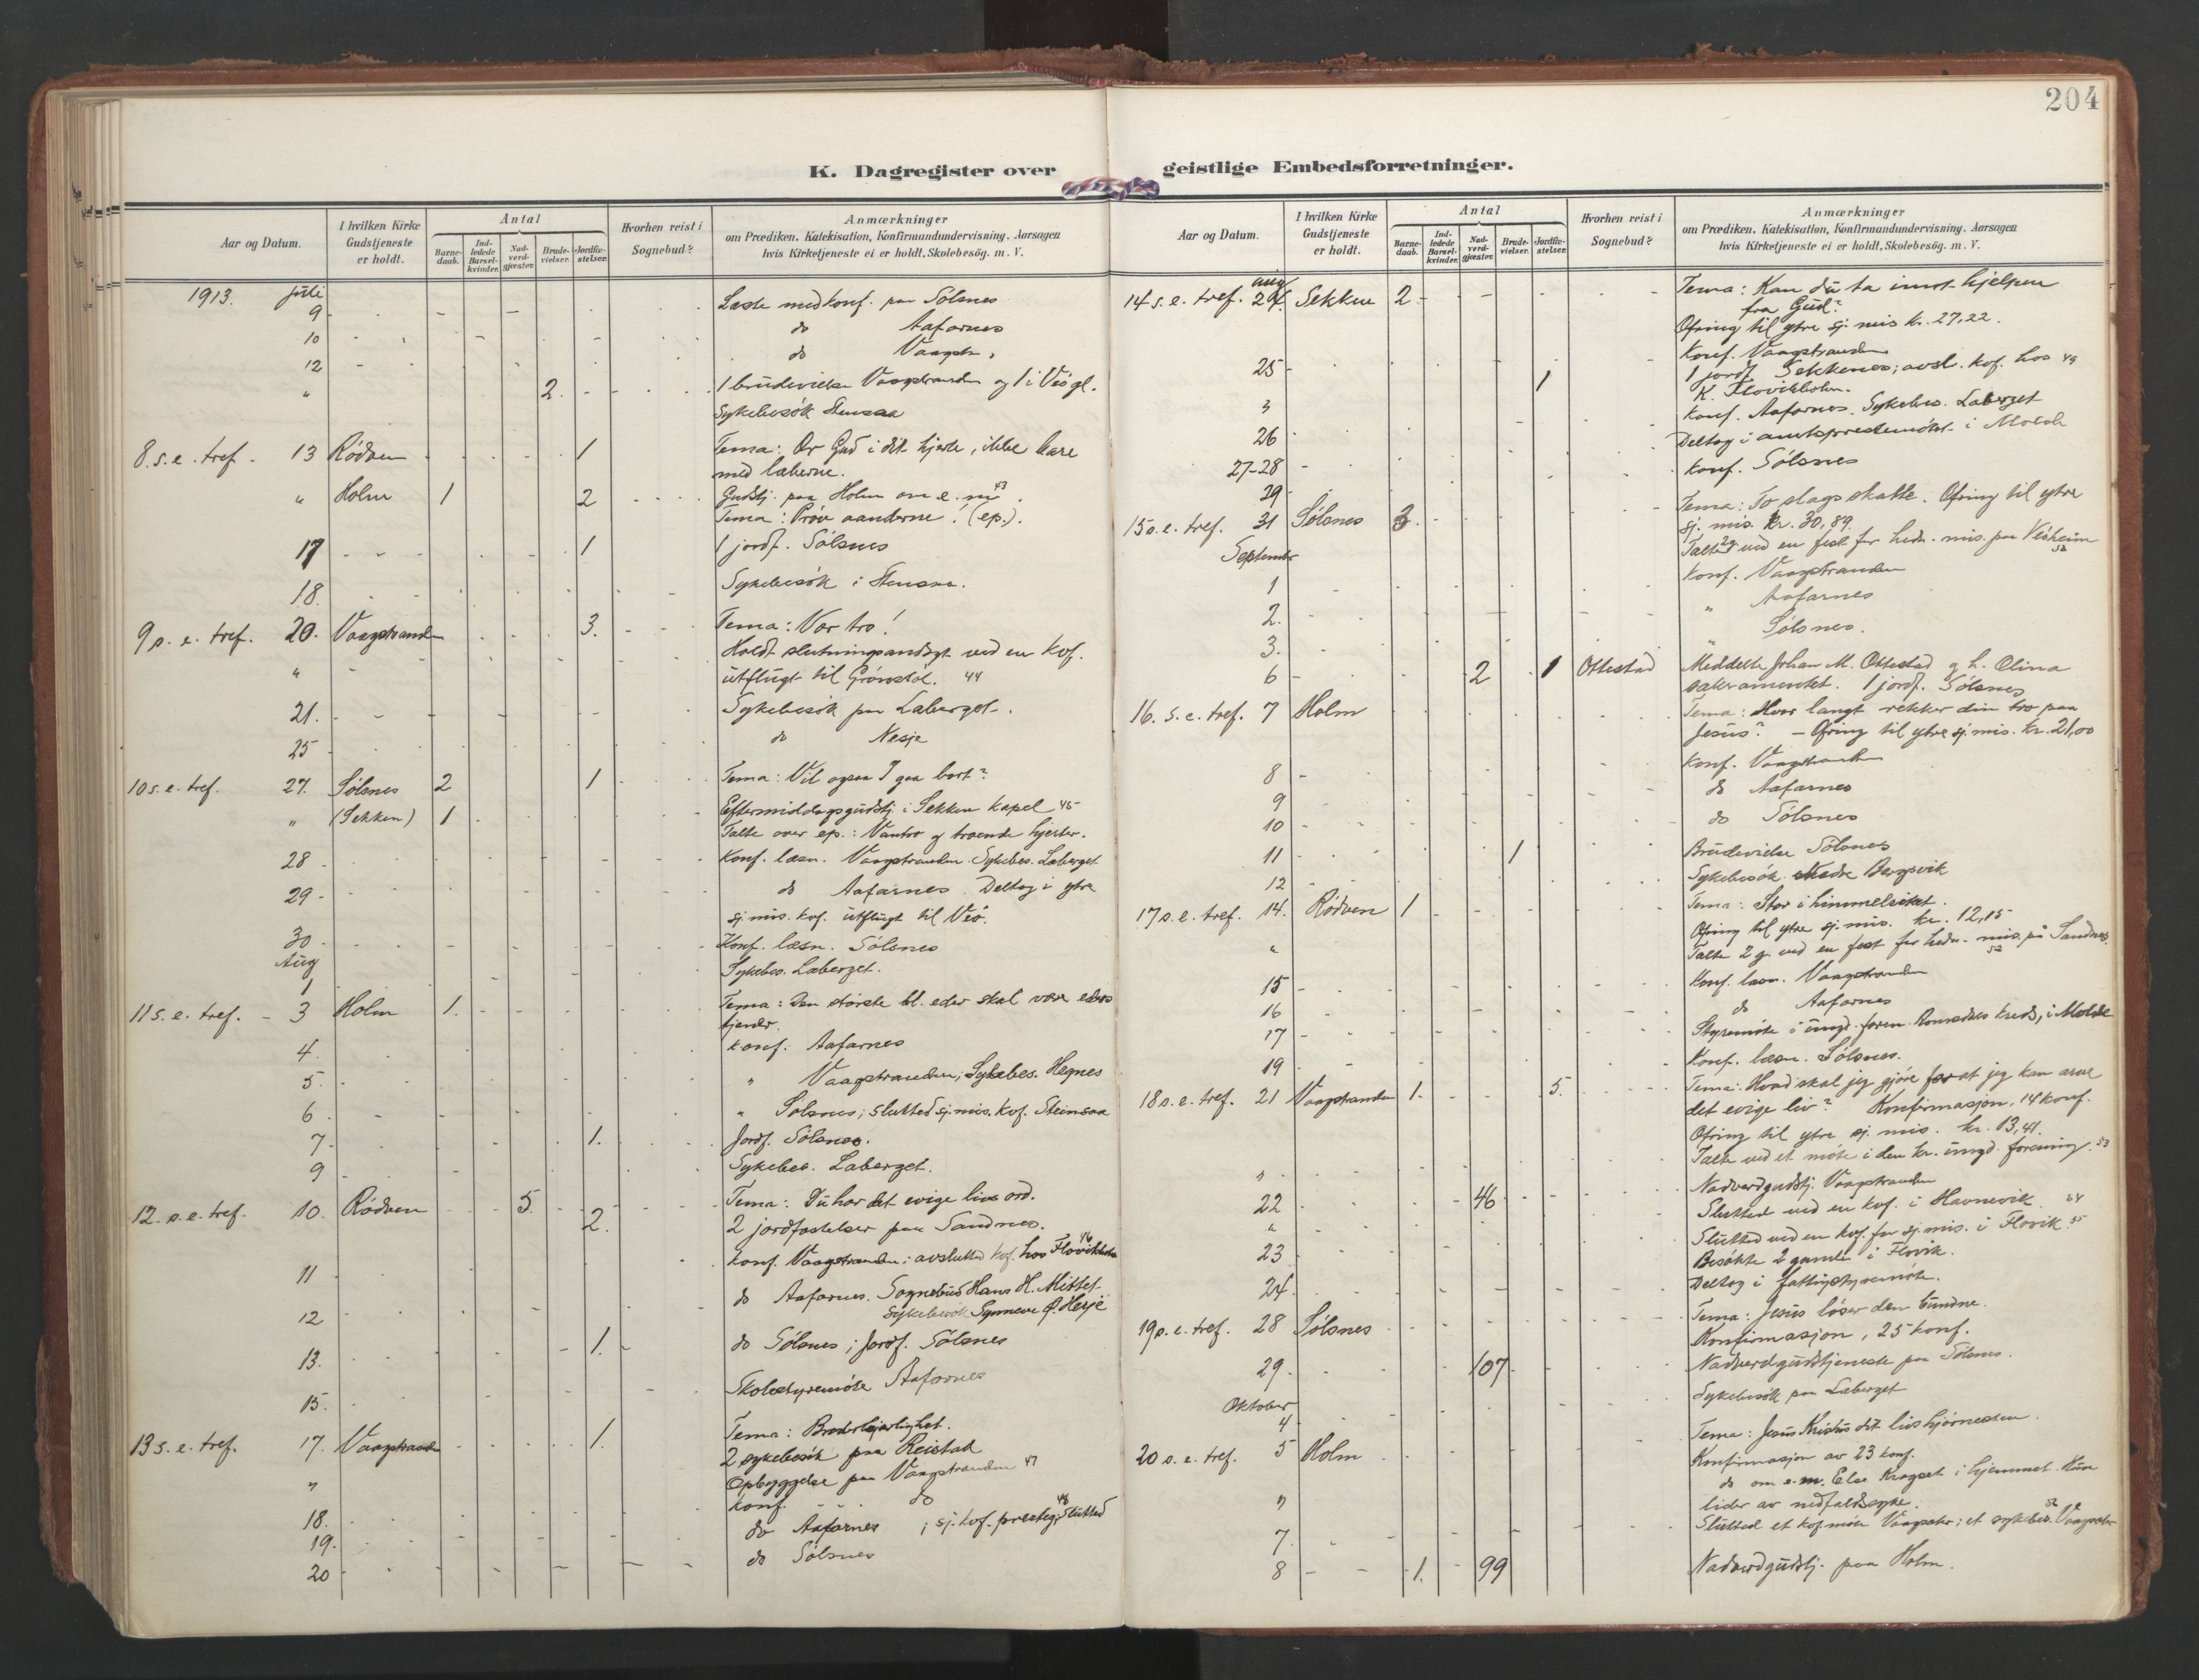 204
K. Dagregister over geistlige Embedsforretninger.
Aar og Datum.
I hvilken Kirke Gudstjeneste er holdt.
Antal
Barne-daab.
Ind-ledede Barsel-kvinder.
Nad-verd-gjæster.
Brude-vielser.
Jordfæ-stelser.
Hvorhen reist i Sognebud?
Anmærkninger
om Prædiken, Katekisation, Konfirmandundervisning. Aarsagen
hvis Kirketjeneste ei er holdt. Skolebesög. m. V.
1913. juli
9 Læste med konf. paa Sølsnes
10 do Aafarnes
12 do Vaagstr.
" 2. 1 brudevielse Vaagstranden og 1 i Veø gl.
Sykebesøk Stensaa
8. s. e. tref. 13 Rødven 1 Tema: Ær Gud i dit hjerte, ikke bare
med læberne.
" Holm 1 2 Gudstj. paa Holm om e. m. 43
Tema: Prøv aanderne! (ep.).
17 1 1 jordf. Sølsnes
18. Sykebesøk i Stensaa.
9 s. e. tref. 20. Vaagstranden 3. Tema: Vor tro!
" Holdt slutningsandagt ved en kof.
utflugt til Grønstøl. 44
21. Sykebesøk paa Laberget.
25 do Nesje
10 s. e. tref. 27. Sølsnes 2 1 Tema: Vil ogsaa I gaa bort?
" (Sekken) 1 Eftermiddagsgudstj. i Sekken kapel 45
Talte over ep.: Vantro og troende hjerter.
28 Konf. læsn. Vaagstranden. Sykebes. Laberget
29 do Aafarnes Deltog i ytre
sj. mis. kof. utflugt til Veø.
30 Konf. læsn. Sølsnes
Aug
1 Sykebes. Laberget.
11 s. e. tref. 3 Holm 1. Tema: Den største bl. eder skal være eders
tjener.
4. konf. Aafarnes
5. " Vaagstranden; Sykebes. Hegnes
6 " Sølsnes; slutted sj. mis. kof. Steinsaa
7 1. Jordf. Sølsnes.
9 Sykebes. Laberget.
12. s. e. tref. 10. Rødven 5. 2. Tema: Du har det evige livs ord.
2 jordfæstelser paa Sandnes.
11 konf. Vaagstranden; avsluttet kof. hos Flovikholm 46
12 do Aafarnes. Sognebud Hans H. Mittet
Sykebesøk Synneve Ø. Herje
13. 1. do Sølsnes; Jordf. Sølsnes
15. Skolestyremøte Aafarnes
13 s. e. tref. 17. Vaagstranden 1. Tema: Broderkjærlighet.
2 sykebesøk paa Reistad
" Opbyggelse paa Vaagstranden 47
18. konf. do
19. do Aafarnes ; sj. kof. presteg. sluttet 48
20 do Sølsnes
Aar og Datum.
I hvilken Kirke Gudstjeneste er holdt.
Antal
Barne-daab.
Ind-ledede Barsel-kvinder.
Nad-verd-gjæster.
Brude-vielser.
Jordfæ-stelser.
Hvorhen reist i Sognebud?
Anmærkninger
om Prædiken, Katekisation, Konfirmandundervisning. Aarsagen
hvis Kirketjeneste ei er holdt. Skolebesög. m. V.
aug
14 s. e. tref. 24. Sekken 2 Tema: Kan du ta imot hjelpen
fra Gud?
Ofring til ytre sj. mis kr. 27,22.
25 Konf. Vaagstranden
1 1 jordf. Sekkenes; avsl. kof. hos 49
K. Flovikholm.
26 konf. Aafarnes. Sykebes. Laberget
27-28 Deltog i amtsprestemøtet i Molde
29 konf. Sølsnes
15 s. e. tref. 31 Sølsnes 3. Tema: To slags skatte. Ofring til ytre
sj. mis. kr. 30,89.
September Talte 2 g. ved en fest for hedn. mis. paa Veøheim
1 konf. Vaagstranden
2. " Aafarnes
3. " Sølsnes.
6 2 1 Ottestad Meddelte Johan M. Ottestad og h. Olina
sakramentet. 1 jordf. Sølsnes
16. s. e. tref. 7 Holm Tema: Hvor langt rekker din tro paa
Jesus? - Ofring til ytre sj. mis. kr. 21,00
8 konf. Vaagstranden
9 do Aafarnes
10 do Sølsnes
11 1 Brudevielse Sølsnes
12 Sykebesøk Nedre Bergsvik
17 s. e. tref. 14. Rødven 1 Tema: Stor i himmelriket.
Ofring til ytre sj. mis. kr. 12,15
" Talte 2 g. ved en fest for hedn. mis. på Sandnes 52
15 Konf. læsn. Vaagstranden
16 do Aafarnes
17 Styremøte i ungd. foren. Romsdals kreds, i Molde
19 Konf. læsn. Sølsnes.
18 s. e. tref. 21 Vaagstranden 1. 5. Tema: Hvad skal jeg gjøre for at jeg kan arve
det evige liv? Konfirmasjon, 14 konf.
Ofring til ytre sj. mis. kr. 13,41.
" Talte ved et møte i den kr. ungd. forening. 53
22 46 Nadverdgudstj. Vaagstranden
" Slutted ved en kof. i Havnevik 54
23 Sluttet ved en kof. for sj. mis. i Flovik 55
Besøkte 2 gamle i Flovik.
24. Deltog i fattigstyremøte.
19 s. e. tref. 28 Sølsnes Tema: Jesus løser den bundne.
Konfirmasjon, 25 konf.
29. 107 Nadverdgudstjeneste paa Sølsnes.
Oktober
4 Sykebesøk paa Laberget
20 s. e. tref. 5 Holm Tema: Jesus Kristus dit livs hjørnesten.
Konfirmasjon av 23 konf.
" do om e. m. Else Krogset i hjemmet. Hun
lider av nedfaldssyke.
7. Sluttet et kof. møte Vaagsæter; et sykebes. Vaagsæter 56
8 1. 99 Nadverdgudstj. paa Holm.